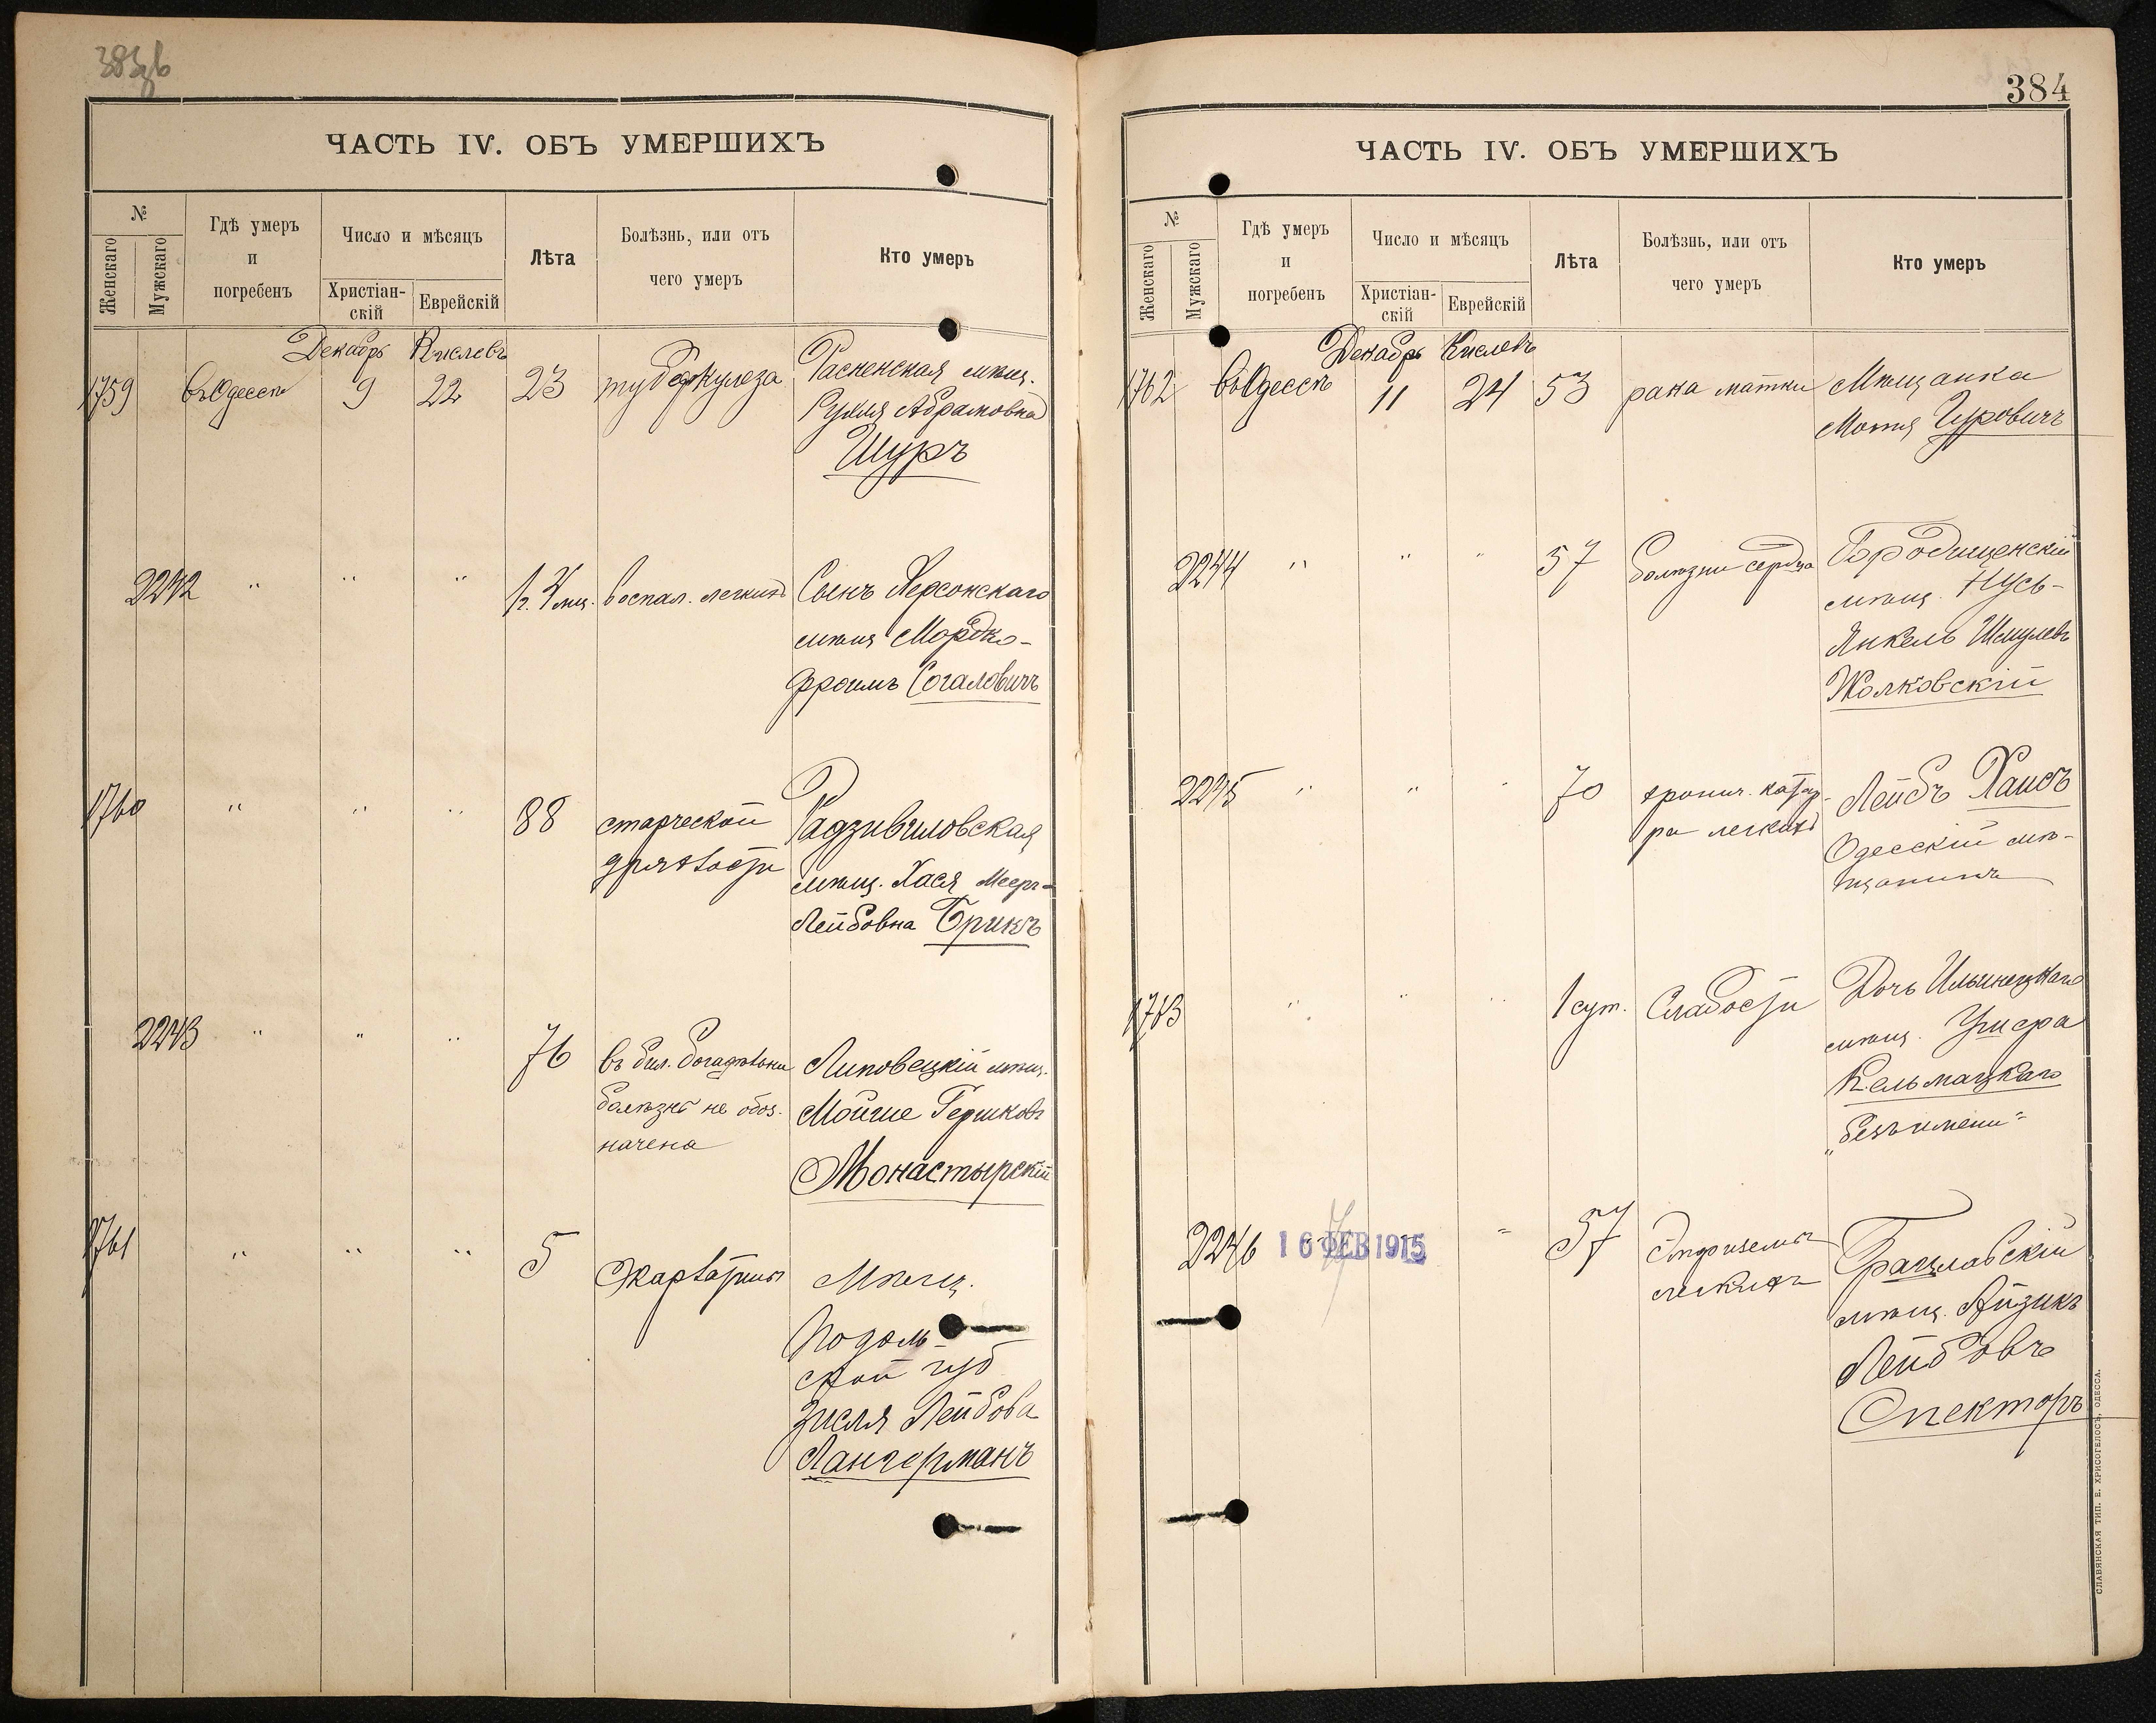 384
ЧАСТЬ IV. ОБЪ УМЕРШИХЪ
№
Женскаго
Мужскаго
Гдѣ умеръ
и
погребенъ
Число и мѣсяцъ
Христіан-
скій
Еврейскій
Лѣта
Болѣзнь, или отъ
чего умеръ
Кто умеръ
Декабрь Кислевъ
1759 въ Одессѣ 9 22 23 туберкулеза Расненская мѣщ.
Рухля Абрамовна
Шуръ
2242 " " " 1 г. 4 мѣс. воспал. легкихъ Сынъ Херсонскаго
мѣщ Мордко-
Фроимъ Согаловичъ
1760 " " " 88 старческой Радзивиловская
дряхлости мѣщ. Хася Меер-
Лейбовна Брикъ
2243 " " " 76 въ бил. богадѣльни Липовецкій мѣщ.
болѣзнь не обоз- Мойше Гершковъ
начена Монастырскій
1761 " " " 5 Скарлатины Мѣщ.
Подоль-
ской губ
Зисля Лейбова
Лангерманъ
ЧАСТЬ IV. ОБЪ УМЕРШИХЪ
№
Женскаго
Мужскаго
Гдѣ умеръ
и
погребенъ
Число и мѣсяцъ
Христіан-
скій
Еврейскій
Лѣта
Болѣзнь, или отъ
чего умеръ
Кто умеръ
Декабрь Кислевъ
1762 въ Одессѣ 11 24 53 рака матки Мѣщанка
Мотя Гуровичъ
2244 " " " 57 болѣзни сердца Городищенскій
мѣщ. Нусь-
Янкель Шмулевъ
Жолковскій
2245 " " " 70 хронич. катар- Лейбъ Хаисъ
ра легкихъ Одесскій мѣ-
щанинъ
1763 " " " 1 сут. Слабости Дочь Ильинецкаго
мѣщ. Ушера
Кельмацкаго
"безъ имени"
2246 16 ФЕВ 1915 " 57 Эмфизема Брацлавскій
легкихъ мѣщ. Айзикъ
Лейбовъ
Спекторъ
СЛАВЯНСКАЯ ТИП. Е. ХРИСОГЕЛОСЪ, ОДЕССА.